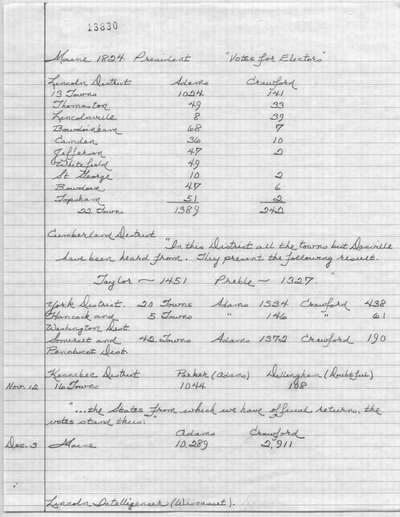 13830
Maine 1824 President "Votes for Electors"
Lincoln District Adams Crawford
13 Towns 1024 141
Thomaston 49 33
Lincolnville 8 39
Bowdoinham 68 7
Camden 36 10
Jefferson 47 2
Whitefield 49
St. George 10 2
Bowdoin 47 6
Topsham 51 2
22 Towns 1389 242
Cumberland District
"In this District all the towns but Danville
have been heard from. They present the following result.
Taylor ~ 1451 Preble ~ 1327."
York District 20 Towns Adams 1534 Crawford 438
Hancock and 5 Towns " 146 " 61
Washington Dist.
Somerset and 42 Towns Adams 1372 Crawford 190
Penobscot Dist.
Kennebec District Parker (Adams) Dillingham (Doubtful)
Nov. 12 16 Towns 1044 108
"...the States from which we have official returns, the
votes stand thus:"
Adams Crawford
Dec. 3 Maine 10,289 2,911
Lincoln Intelligencer (Wiscasset).